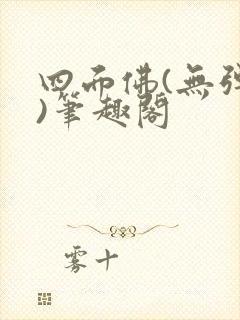 四面佛(無彈
)筆趣閣
雾十